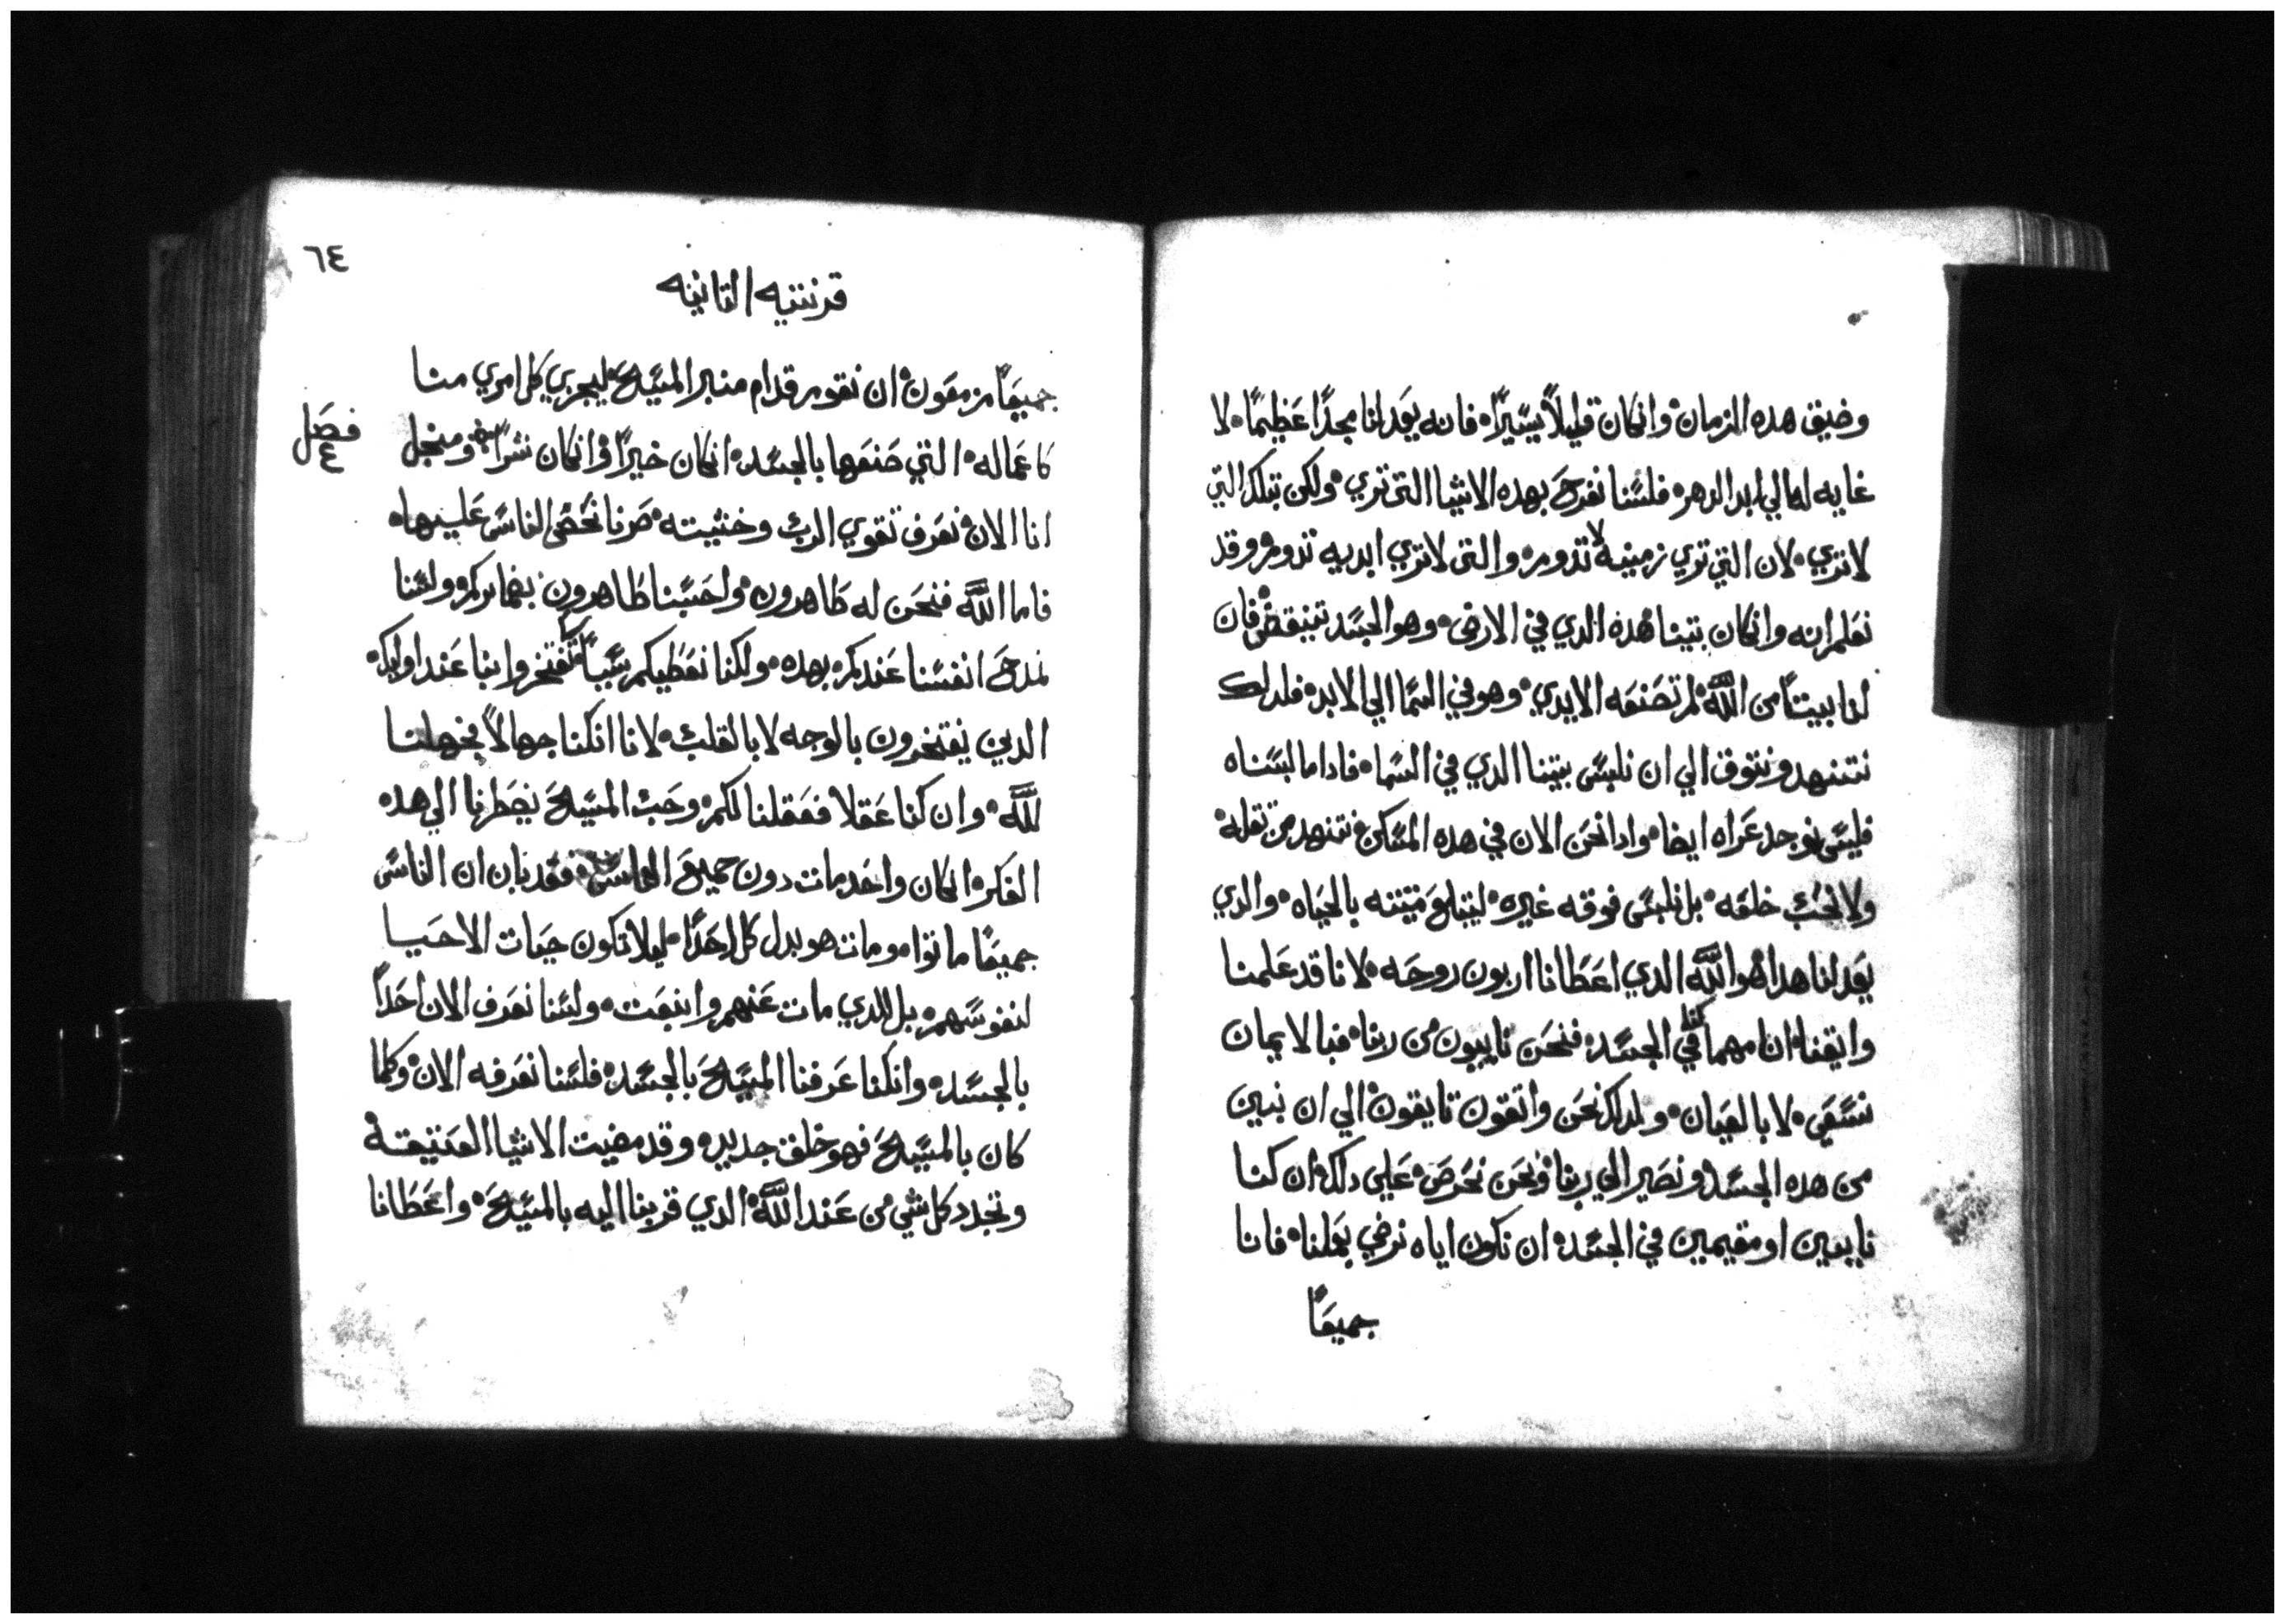 وضيق هده الزمان وانكان قليلاً يسيراً فانه يعد لنا مجداً عظيماً لا
غايه له الي ابد الدهر فلسنا نفرح بهده الاشيا التي تري ولكن بتلك التي
لا تري لان التي تري زمنيه لا تدوم والتي لا تري ابديه تدوم وقد
نعلم انه وانكان بيتنا هده الدي في الارض وهو الجسد تنيقض فان
لنا بيتاً من الله لم تصنعه الايدي وهو في السما الي الابد فلدلك
نتنهد ونتوق الي ان نلبس بيتنا الدي في السما فادا ما لبسناه
فليس نوجد عراه ايضا وادا نحن الان في هده المسكن نتنهد من تقله
ولا نحب خلعه بل نلبس فوقه غيره ليتبلع ميتته بالحياه والدي
يعد لنا هدا هو الله الدي اعطانا اربون روحه لانا قد علمنا
وايقنا انا مهما كنا في الجسد فنحن نايبون من ربنا فبالايمان
نسعي لا بالعيان ولدلك نحن واتقون تايقون الي ان نبين
من هده الجسد ونصير الي ربنا ونحن نحرص علي دلك ان كنا
نايبين او مقيمين في الجسد ان نكون اياه نرضي بعملنا فانا
جميعاً
٦٤
قرنتيه التانيه
جميعاً مزمعون ان نقوم قدام منبر المسيح ليجزي كل امري منا
كاعماله التي صنعها بالجسد انكان خيراً وانكان شراً ومنجل
فصل
٤
انا الان نعرف تقوي الرب وخشيته صرنا نحض الناس عليها
فاما الله فنحن له ظاهرون واحسبنا ظاهرون بضمايركم ولسنا
نمدح انفسنا عندكم بهده ولكنا نعطيكم سبباً لتفتخروا بنا عند اوليك
الدين يفتخرون بالوجه لا بالقلب لانا انكنا جهالاً فجهلنا
لله وان كنا عقلا فعقلنا لكم وحب المسيح يضطرنا الي هده
الفكر انكان واحد مات دون جميع الناس فقد بان ان الناس
جميعاً ماتوا ومات هو بدل كل احداً ليلا تكون حيات الاحيا
لنفوسهم بل للدي مات عنهم وانبعت ولسنا نعرف الان احداً
بالجسد وانكنا عرفنا المسيح بالجسد فلسنا نعرفه الان وكلما
كان بالمسيح فهو خلق جديد وقد مضيت الاشيا العتيقة
وتجدد كل شي من عند الله الدي قربنا اليه بالمسيح واعطانا